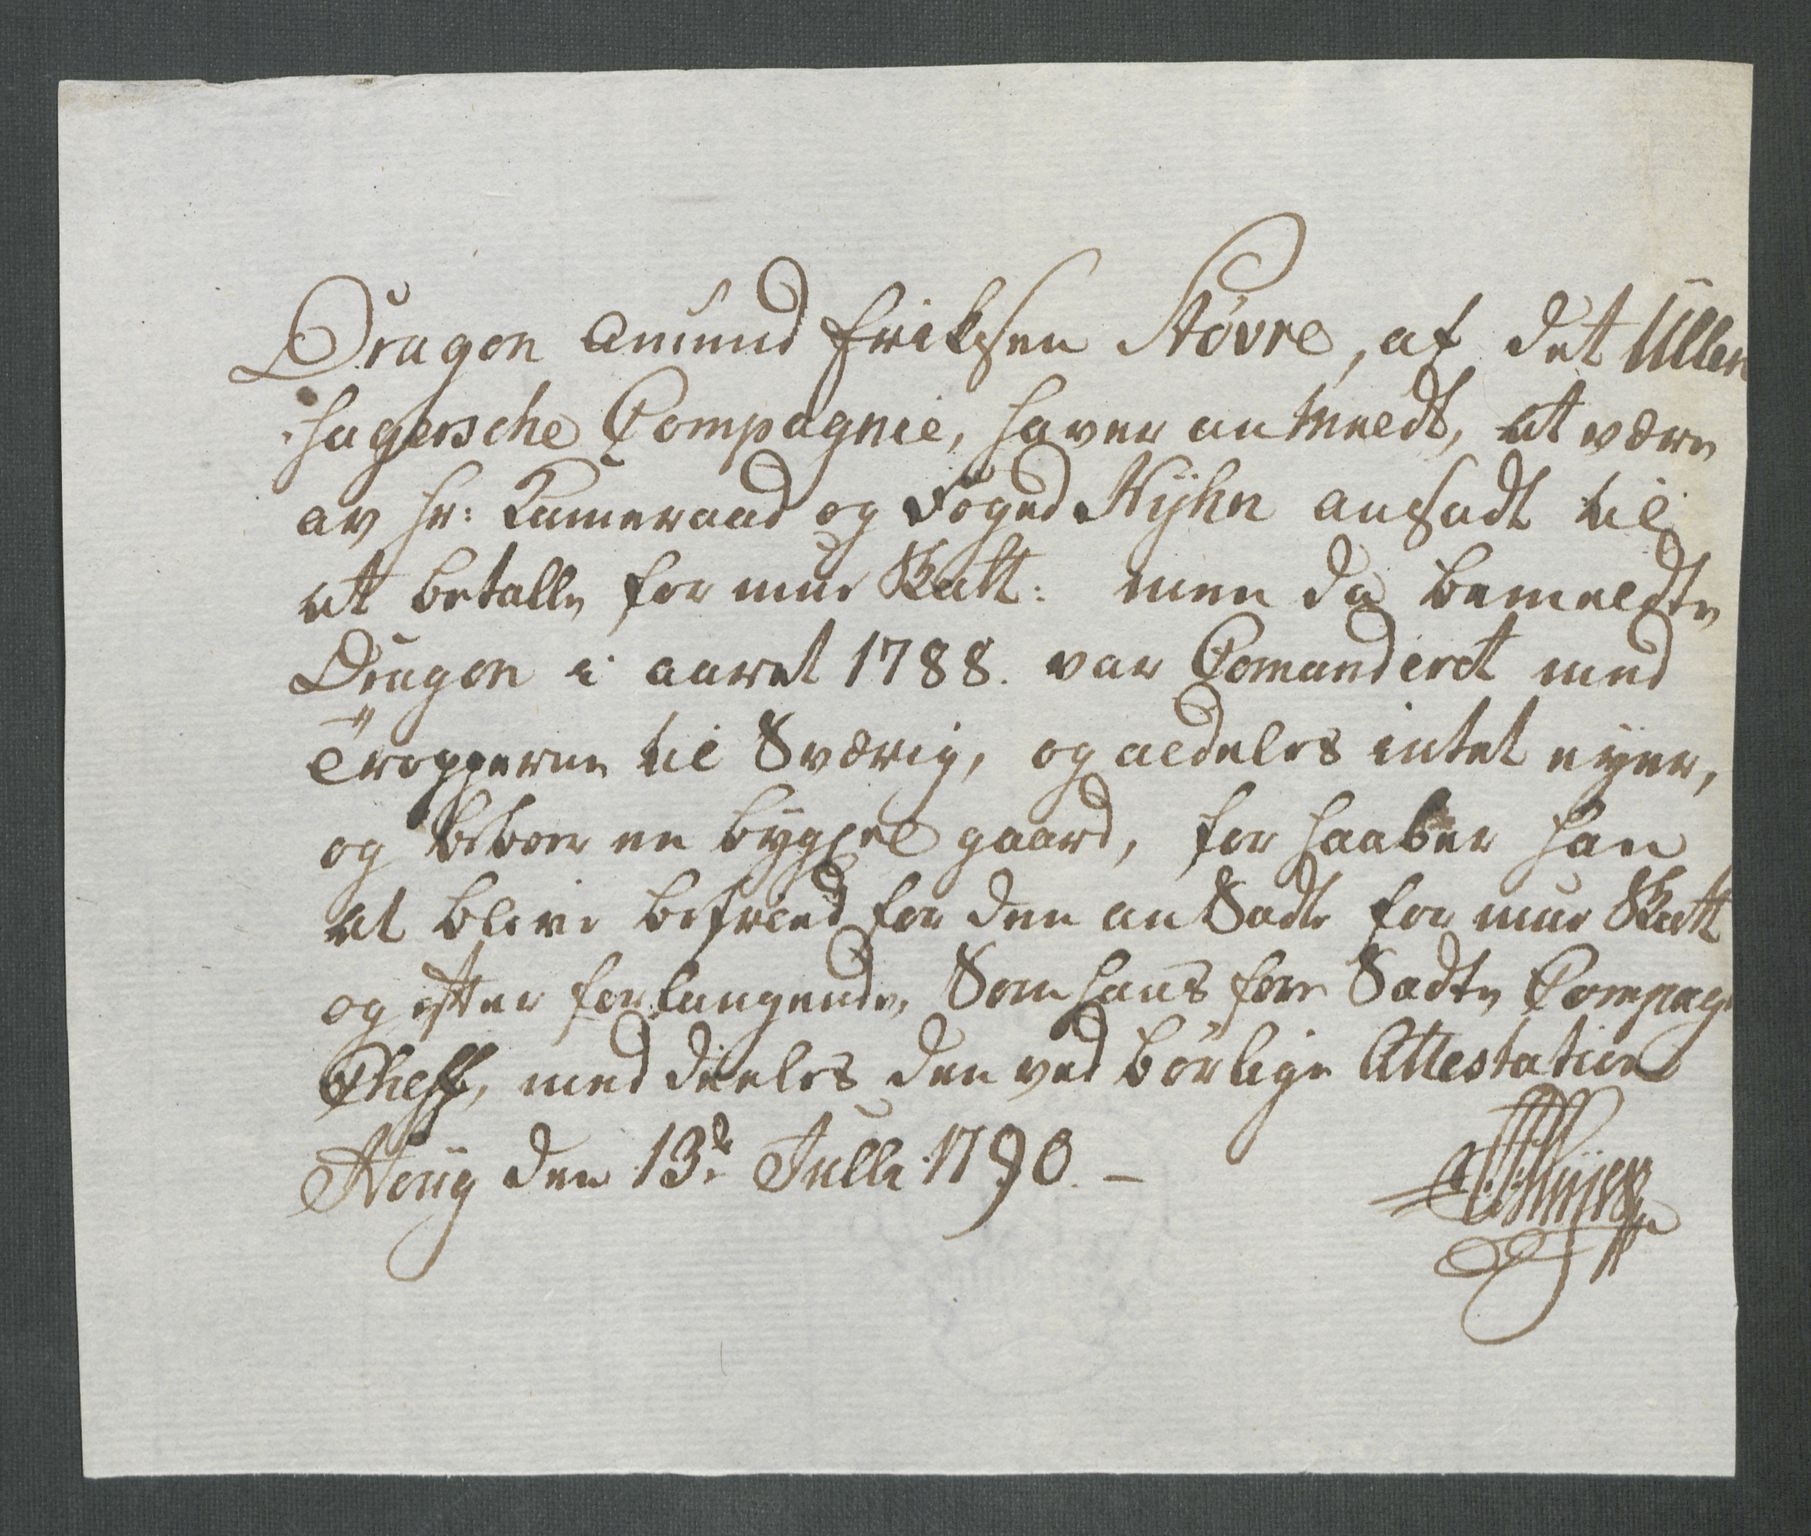 Dragon Amund Eriksen Støvre, af det Ullen
sagersche Compagnie, haver anmeldt, at være
av Hr: Kameraad og Foged Nyhn ansadt til
at betalle formue Skatt: men da bemeldte
Dragon i aaret 1788. var Comanderet med
Tropperne til Sværig, og aldeles intet eyer,
og beboer en bygsel gaard, for haaber han
at blive befried for den an Sadte for mue Skatt
og efter forlangende, Som hans fore Sadte Compag
Cheff, med deeles den ved børlige Attestation
den 13de Julli 1790. —